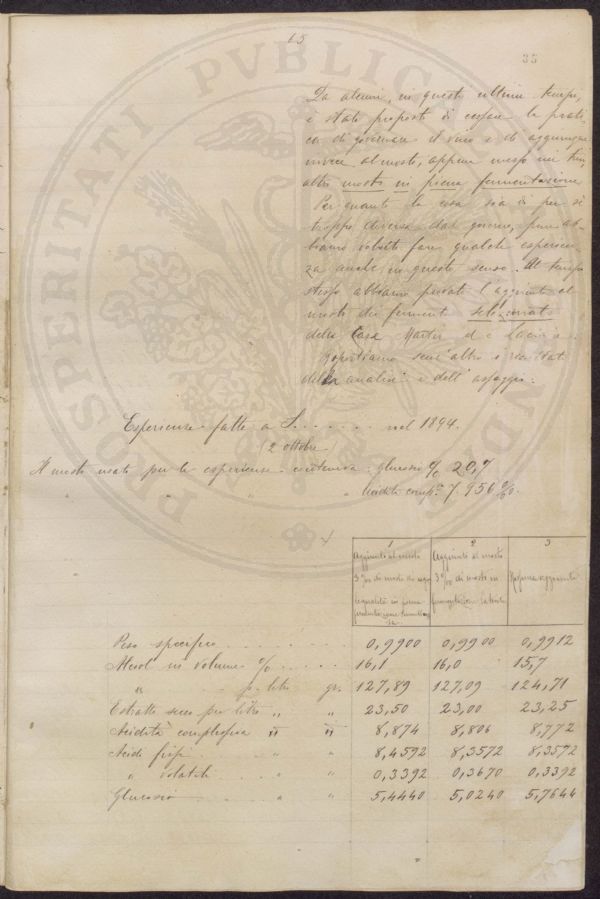 65
35
PVBLICAE
PROSPERITATI
Da alcuni, in questi ultimi tempi,
è stato proposto di cessare la prati-
ca di governare il vino e di aggiungere
invece al mosto, appena messo nei tini,
altro mosto in piena fermentazione.
Per quanto la cosa sia di per sè
troppo diversa dal governo, pure ab-
biamo voluto fare qualche esperien-
za anche in questo senso. Al tempo
stesso abbiamo provato l'aggiunta al
mosto dei fermenti selezionati
della Casa Martin
Riportiamo senz'altro i risultati
della analisi e dell'assaggio.
Esperienze fatte a S. . . . . . . nel 1894.
(2 ottobre)
Il mosto usato per le esperienze conteneva: glucosio % 20,7
" " " " acidità comp.ª 7.956 ‰.
1 2 3
Aggiunto al mosto Aggiunto al mosto
3 % di mosto di 3 % di mosto in Nessuna aggiunta
qualità in piena fermentazione
fermentazione
Peso specifico . . . . . . . . 0,9900 0,9900 0,9912
Alcool in volume % . . . . . 16,1 16,0 15,7
" . . p. litro gr. 127,89 127,09 124,71
Estratto secco per litro " " 23,50 23,00 23,25
Acidità complessiva " " 8,874 8,806 8,772
Acidi fissi . . . " " 8,4592 8,3572 8,3572
" volatili . . . " " 0,3392 0,3670 0,3392
Glucosio . . . . " " 5,4440 5,0240 5,7644